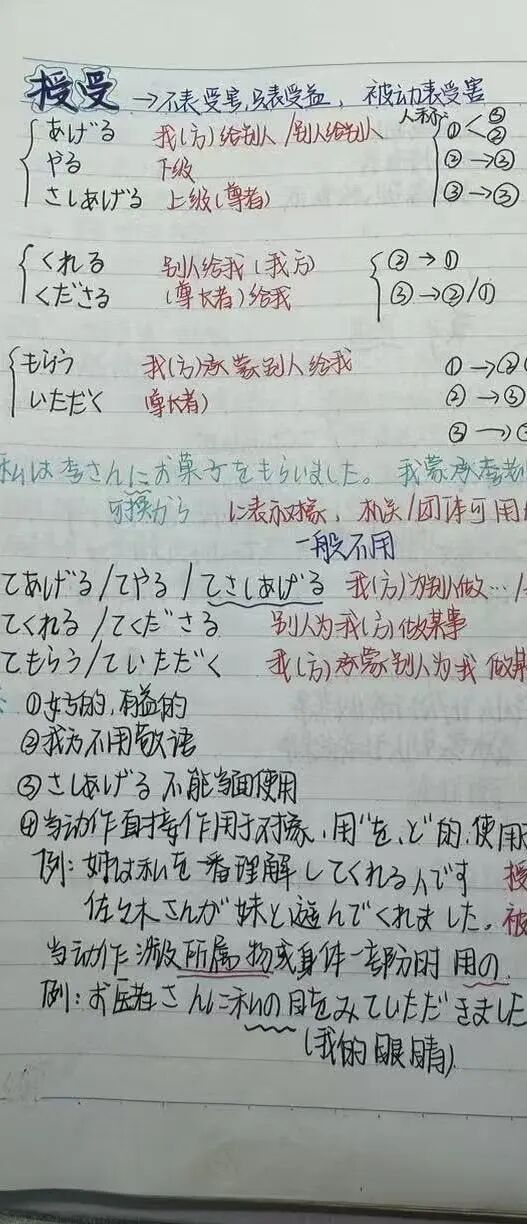 授受 →不表受害,只表受益，被动表受害
あげる 我(方)给别人/别人给别人 人称 ①<③②
やる 下级 ②→③
さしあげる 上级(尊者) ③→③
くれる 别人给我(我方) ②→①
くださる (尊长者)给我 ③→②/①
もらう 我(方)承蒙别人给我 ①→②
いただく 尊长者) ②→③
③→
私は李さんにお菓子をもらいました。我蒙承李
可换から に表示对象，机关/团体可用
一般不用
てあげる/てやる/てさしあげる 我(方)为别人做…/
てくれる/てくださる 别人为我(方)做某事
てもらう/ていただく 我(方)承蒙别人为我做某
①好的,有益的
②我方不用敬语
③さしあげる 不能当面使用
④当动作直接作用于对象，用"を、と"的,使用
例：姉は私を一番理解してくれる人です 授
佐々木さんが妹と遊んでくれました。被
当动作涉及所属物或身体一部份时 用の.
例：お医者さんに私の目をみていただきました
(我的眼睛)